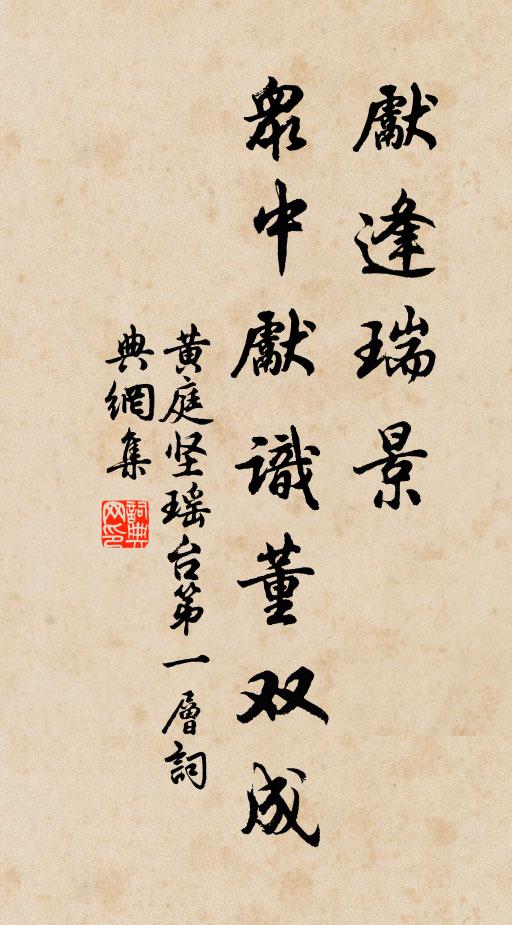 獻逢瑞景
眾中獻識董双成
黄庭坚瑶台第一層詞
典網集
詞典
网印